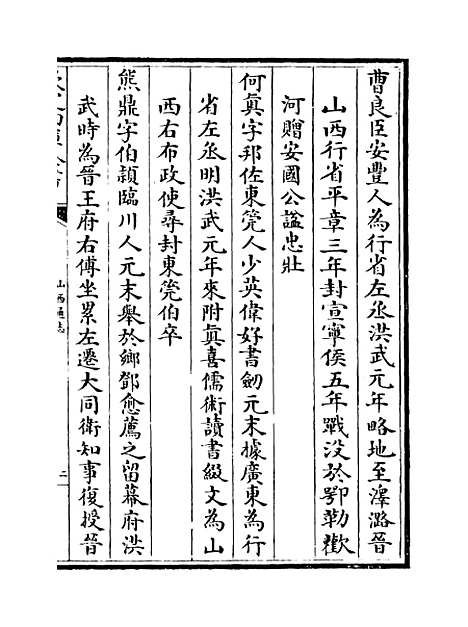 曹良臣安豐人為行省左丞洪武元年略地至澤潞晉
山西行省平章三年封宣寧侯五年戰没於鄂勒歡
河贈安國公諡忠壯
何真字邦佐東筦人少英偉好書劒元末據廣東為行
省左丞明洪武元年來附真喜儒術讀書綴文為山
西右布政使尋封東筦伯卒
熊鼎字伯頴臨川人元末舉於鄉鄧愈薦之留幕府洪
武時為晉王府右傅坐累左遷大同衛知事復授晉
山西通志
二